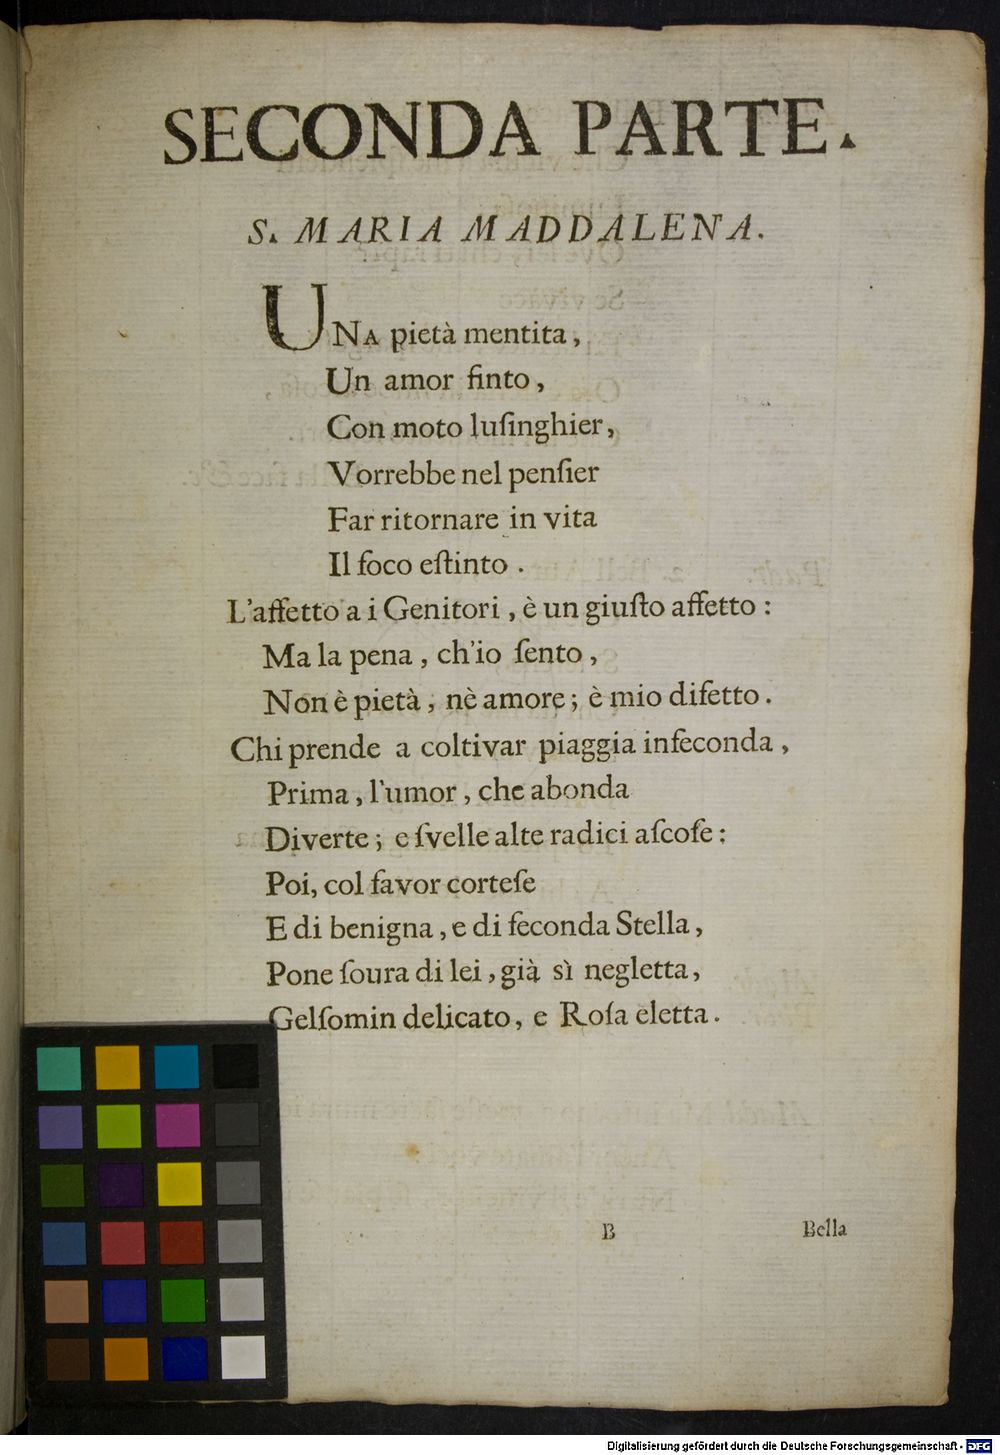 SECONDA PARTE.
S. MARIA MADDALENA.
UNA pietà mentita,
Un amor finto,
Con moto luſinghier,
Vorrebbe nel penſier
Far ritornare in vita
Il foco eſtinto.
L'affetto a i Genitori, è un giuſto affetto:
Ma la pena, ch'io ſento,
Non è pietà, nè amore; è mio difetto.
Chi prende a coltivar piaggia infeconda,
Prima, l'umor, che abonda
Diverte; e ſvelle alte radici aſcoſe:
Poi, col favor corteſe
E di benigna, e di feconda Stella,
Pone ſoura di lei, già sì negletta,
Gelſomin delicato, e Roſa eletta.
B
Bella
Digitalisierung gefördert durch die Deutsche Forschungsgemeinschaft - DFG